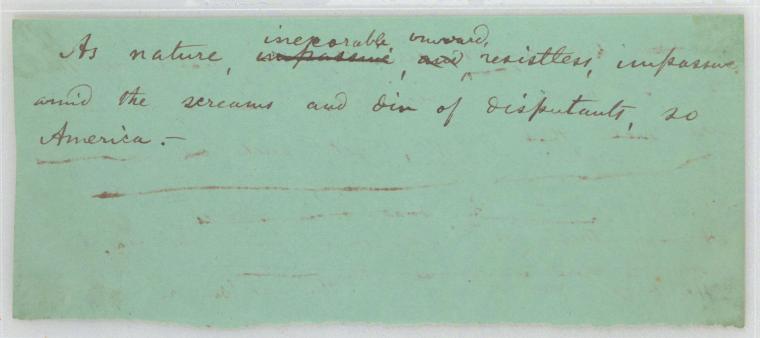 inexorable, onward,
As nature, impassive, and, resistless, impassive
amid the screams and din of disputants, so
America. —